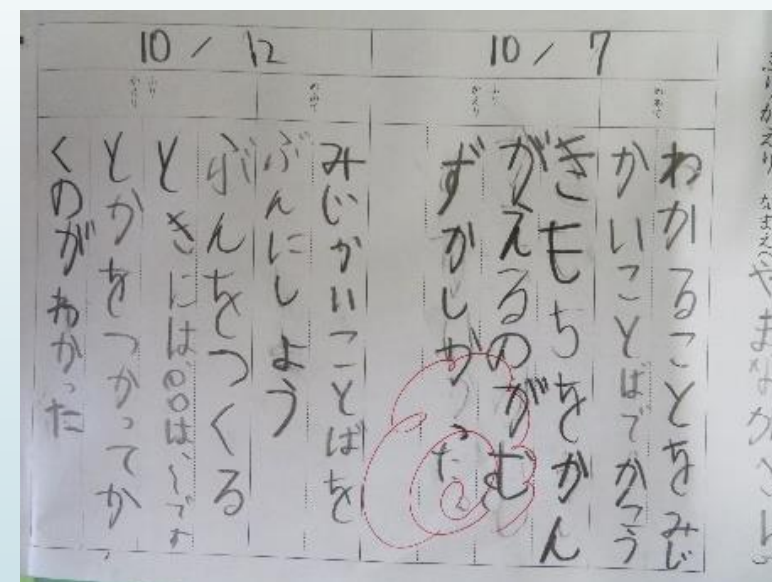 ふりかえり なまえ
10/7
めあて
わかることをみじ
かいことばでかこう
ふりかえり
きもちをかん
がえるのがむ
ずかしかった
10/12
めあて
みじかいことばを
ぶんにしよう
ふりかえり
ぶんをつくる
ときには、〇〇は、〜です
とかをつかってか
くのがわかった